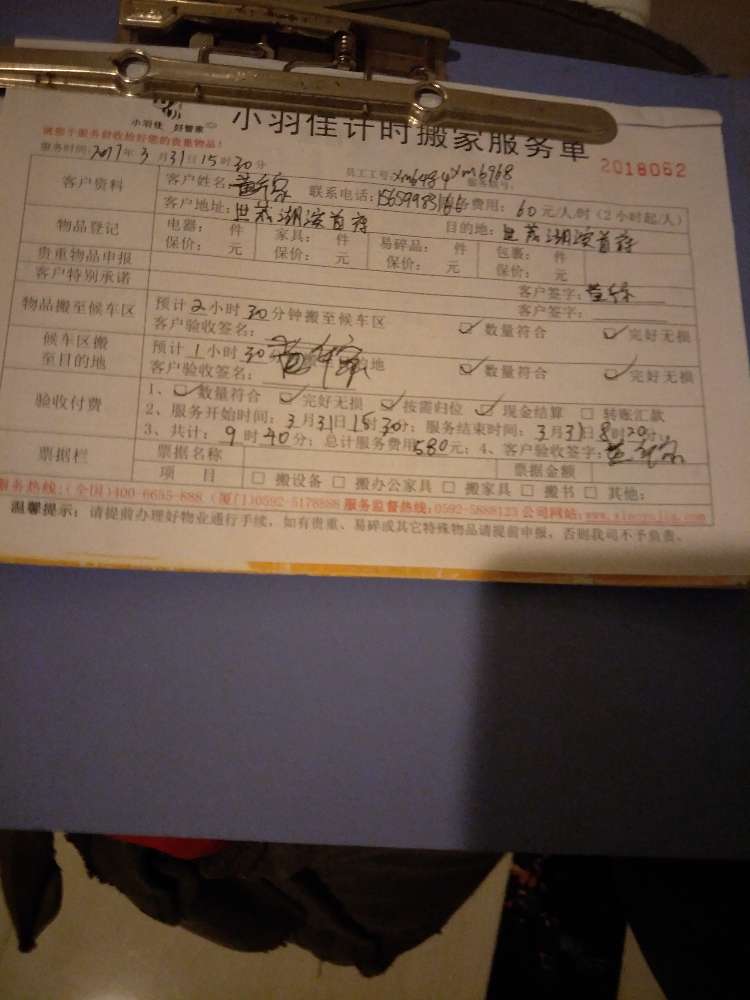 小羽佳 好管家
小羽佳计时搬家服务单
2018062
请您于服务前收拾好您的贵重物品!
服务时间:2017年3月31日15时30分 员工工号:xm6484 xm6968
客户资料 客户姓名: 联系电话: 服务费用:60元/人/时(2小时起/人)
客户地址:世茂湖滨首府 目的地:世茂湖滨首府
物品登记 电器: 件 家具: 件 易碎品: 件 包裹: 件
贵重物品申报 保价: 元 保价: 元 保价: 元 保价: 元
客户特别承诺 客户签字:
物品搬至候车区 预计2小时30分钟搬至候车区 客户签字:
客户验收签名: ☑数量符合 ☑完好无损
候车区搬至目的地 预计1小时30 地
客户验收签名: ☑数量符合 ☑完好无损
验收付费 1、☑数量符合 ☑完好无损 ☑按需归位 ☑现金结算 □转账汇款
2、服务开始时间:3月31日15时30分;服务结束时间:3月31日8时20分;
3、共计:9时40分;总计服务费用580元;4、客户验收签字:
票据栏 票据名称 票据金额
项 目 □搬设备 □搬办公家具 □搬家具 □搬书 □其他:
服务热线:(全国)400-6655-888 (厦门)0592-5178888 服务监督热线:0592-5888123 公司网站:www.xiaoyujia.com
温馨提示:请提前办理好物业通行手续,如有贵重、易碎或其它特殊物品请提前申报,否则我司不予负责。